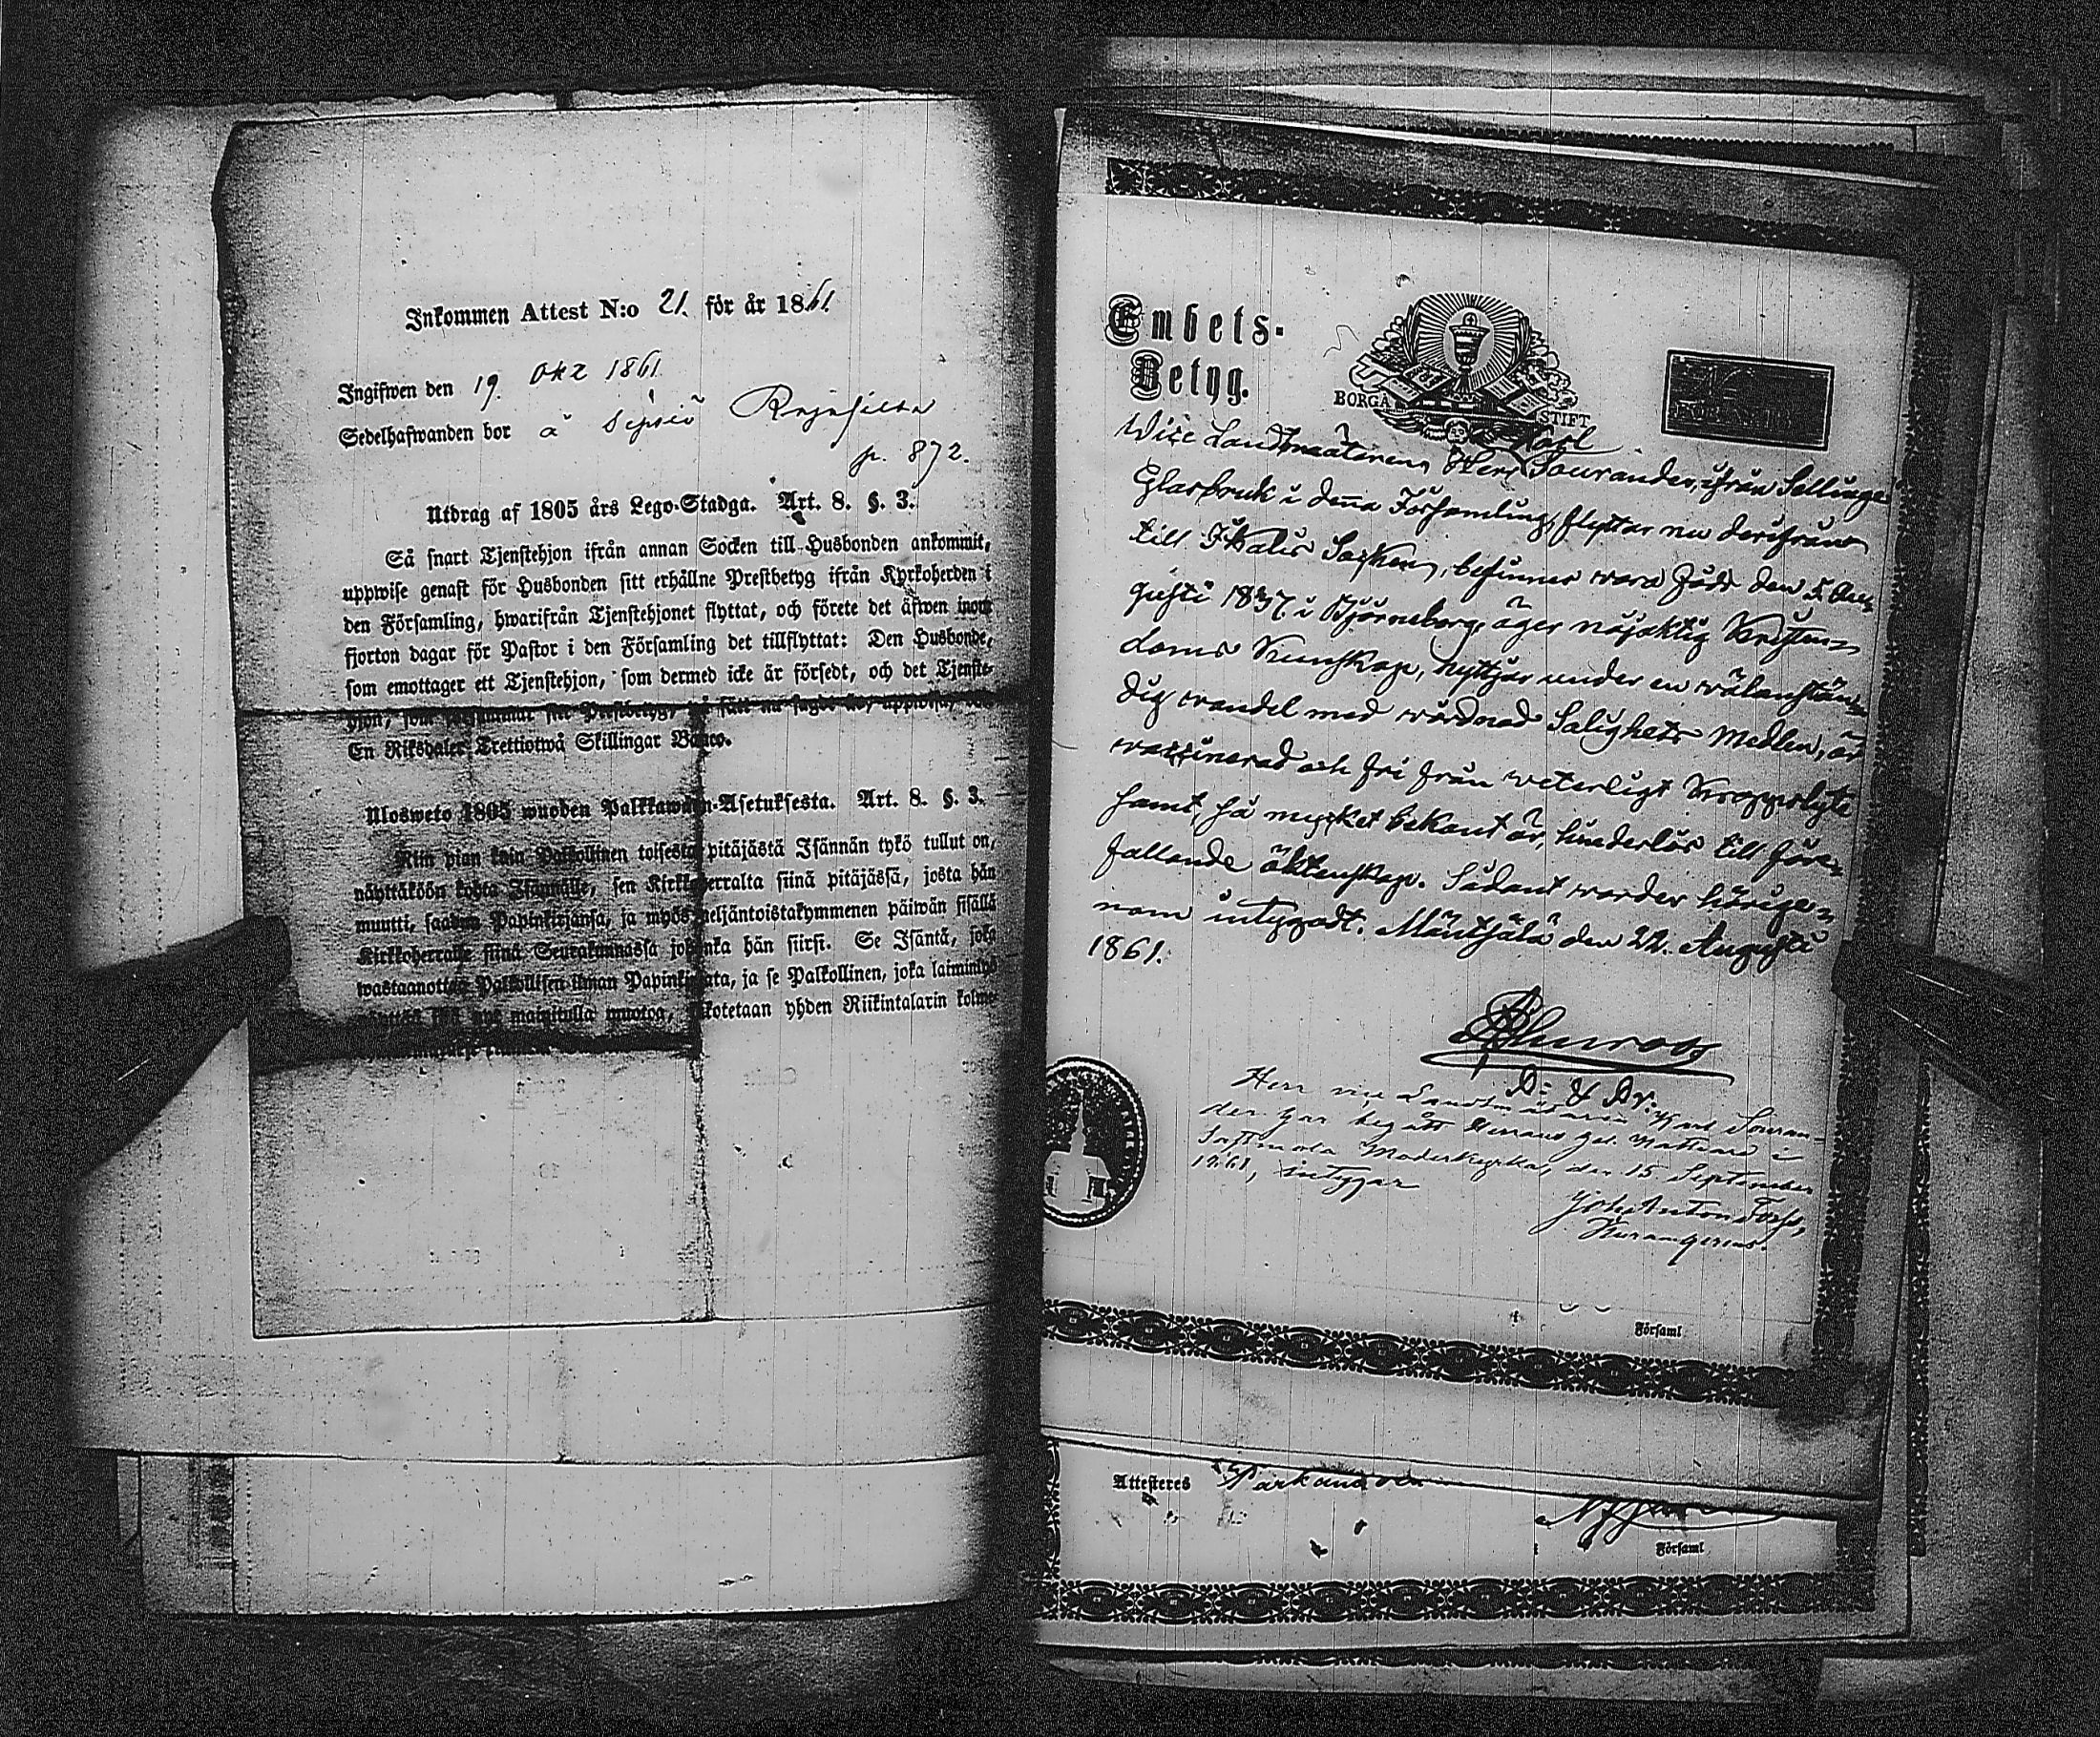 Inkommen Attest N:o 21. för år 1861.
Ingifwen den 19. Okt 1861.
Sedelhafwanden bor å Sipsiö Rajasilta
p. 872.
Utdrag af 1805 års Lego-Stadga. Art. 8. §. 3.
Så snart Tjenstehjon ifrån annan Socken till Husbonden ankommit,
uppwise genast för Husbonden sitt erhållne Prestbetyg ifrån Kyrkoherden i
den Församling, hwarifrån Tjenstehjonet flyttat, och förete det äfwen inom
fjorton dagar för Pastor i den Församling det tillflyttat: Den Husbonde,
som emottager ett Tjenstehjon, som dermed icke är försedt, och det Tjenste-
hjon, som försummar sitt Prestbetyg, på sätt nu sagdt är, uppwisa,
En Riksdaler Trettiotwå Skillingar Banco.
Ulosweto 1805 wuoden Palkkawäen-Asetuksesta. Art. 8. §. 3.
Niin pian kuin Palkollinen toisesta pitäjästä Isännän tykö tullut on,
näyttäköön kohta Isännälle, sen Kirkkoherralta siinä pitäjässä, josta hän
muutti, saadun Papinkirjansa, ja myös neljäntoistakymmenen päiwän sisällä
Kirkkoherralle siinä Seurakunnassa johonka hän siirsi. Se Isäntä, joka
wastaanottaa Palkollisen ilman Papinkirjata, ja se Palkollinen, joka laiminlyö
mainitulla muotoa, sakotetaan yhden Riikintalarin kolme-
Embets-
Betyg.
BORGÅ STIFT
Karl
Wice Landtmätaren Herr Sourander, ifrån Sellinge
Glasbruk i denna Församling, flyttar nu derifrån
till Ikalis Socken, befinnes vara född den 5 Au-
gusti 1837 i Björneborg, äger nöjaktig Kristen-
doms Kunskap, nyttjar under en välanstän-
dig vandel med vördnad Salighets Medlen, är
vaccinerad och fri från veterligt Kroppslyte
samt, så mycket bekant är, hinderlös till före-
fallande äktenskap. Sådant warder härige-
nom intygadt. Mäntsälä den 22. Augusti
1861.
Herr vice Landtmätaren Karl Souran-
der har begått Herrans Hel. Nattvard i
Sastmola Moderkyrka, den 15 September
1861, intygar
Joh. Anton Forss,
Församl
Attesteres Parkano den
Församl